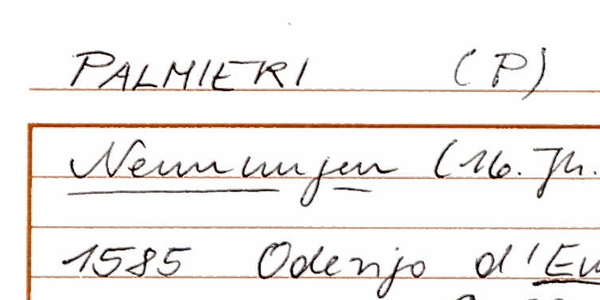 PALMIERI (P)
Nennungen (16. Jh.
1585 Oderigo d'